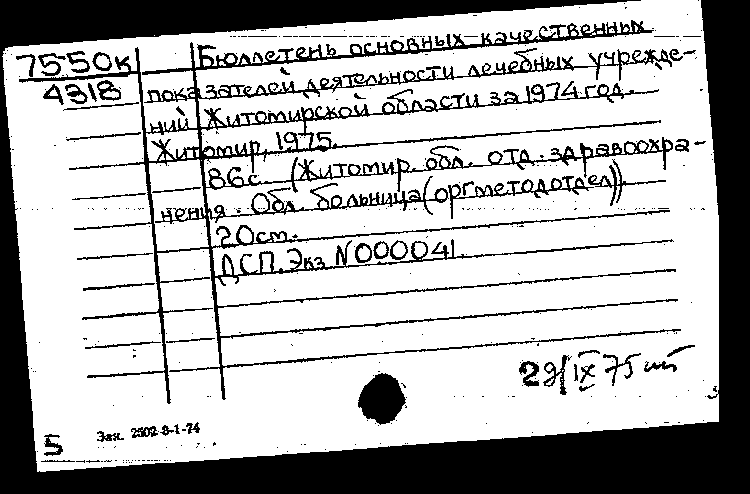 75-50к
4318
Бюллетень основных качественных
показателей деятельности лечебных учрежде-
ний Житомирской области за 1974 год.
Житомир, 1975.
86с. (Житомир. обл. отд. здравоохра-
нения. Обл. больница (оргметодотдел)).
20см.
ДСП. Экз N000041.
29/IX 75
5
Зак. 2502-8-1-74